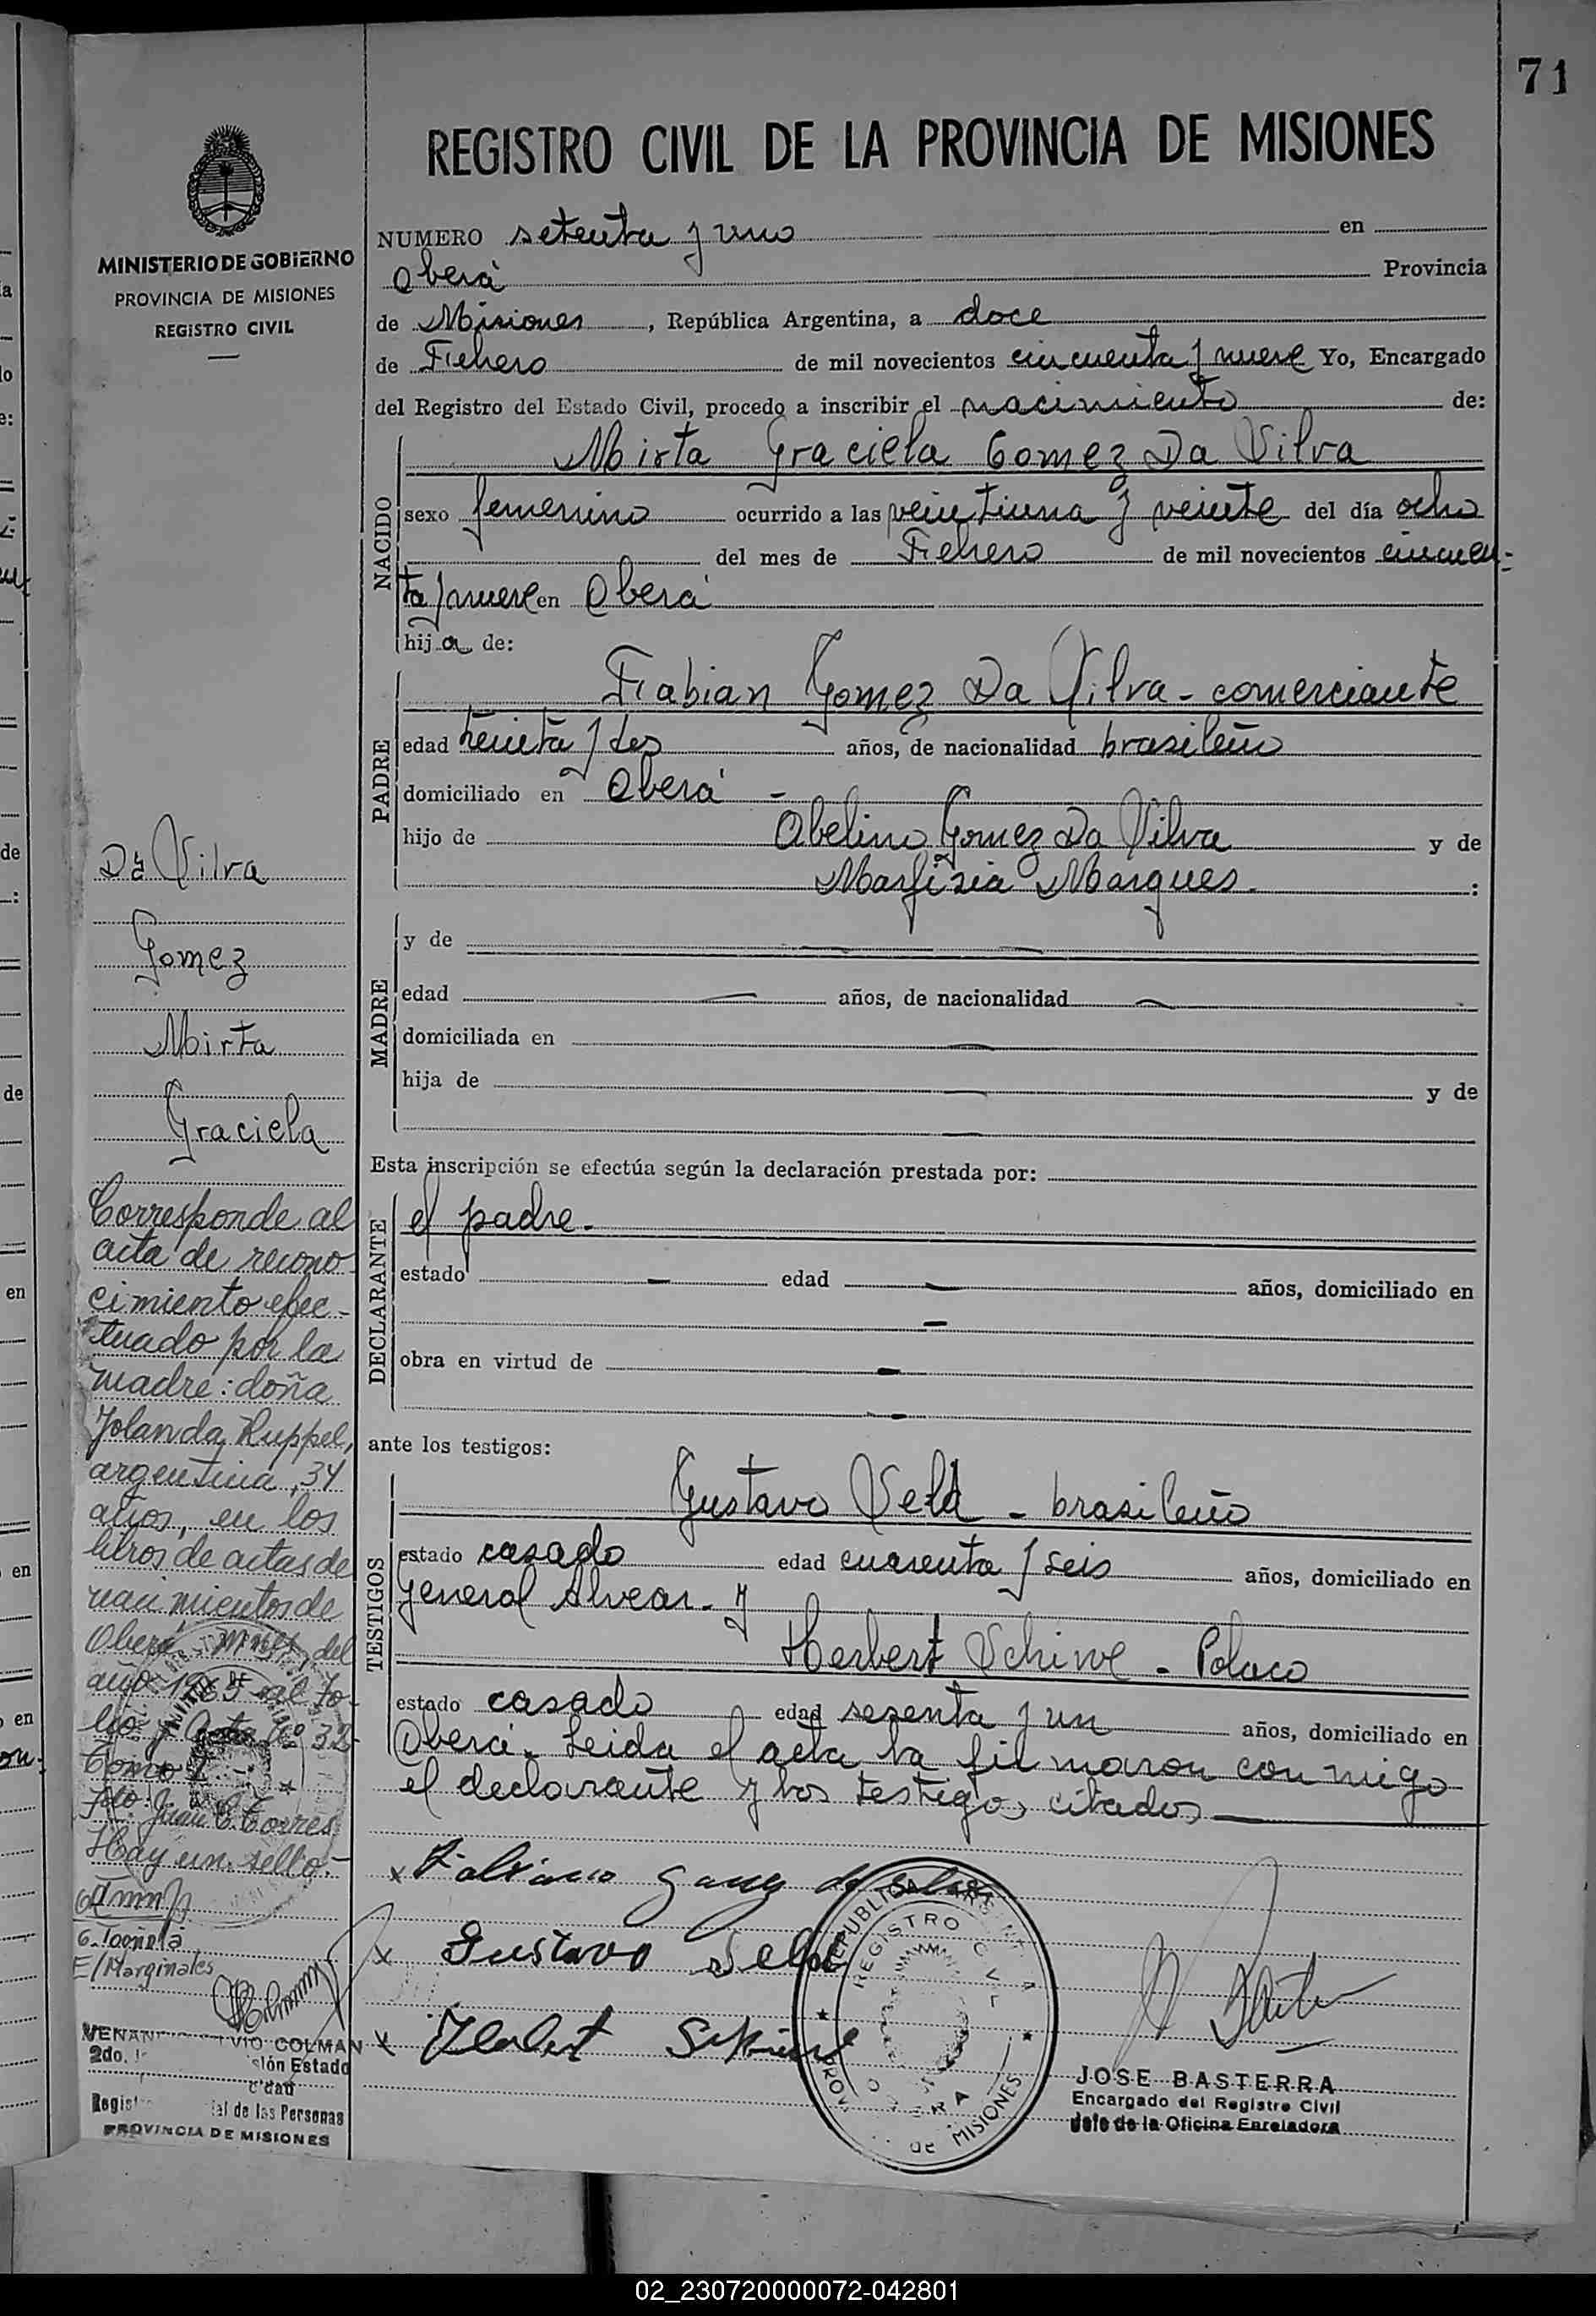 71
REGISTRO CIVIL DE LA PROVINCIA DE MISIONES
MINISTERIO DE GOBIERNO
PROVINCIA DE MISIONES
REGISTRO CIVIL
NUMERO setenta y uno en
Oberá Provincia
de Misiones, República Argentina, a doce
de Febrero de mil novecientos cincuenta y nueve Yo, Encargado
del Registro del Estado Civil, procedo a inscribir el nacimiento de:
NACIDO
Mirta Graciela Gomez Da Silva
sexo femenino ocurrido a las veintiuna y veinte del día ocho
del mes de Febrero de mil novecientos cincuen-
ta y nueve en Oberá
hija de:
PADRE
Fabian Gomez Da Silva - comerciante
edad treinta y dos años, de nacionalidad brasileño
domiciliado en Oberá -
hijo de Abelino Gomez Da Silva y de
Marfisia Marques. :
MADRE
y de
edad años, de nacionalidad
domiciliada en
hija de y de
Esta inscripción se efectúa según la declaración prestada por:
DECLARANTE
el padre.
estado - edad - años, domiciliado en
-
obra en virtud de -
-
ante los testigos:
TESTIGOS
Gustavo Seld - brasileño
estado casado edad cuarenta y seis años, domiciliado en
General Alvear. y
Herbert Schiwe - Polaco
estado casado edad sesenta y un años, domiciliado en
Oberá. Leida el acta la firmaron conmigo
el declarante y los testigos citados
x
x Gustavo Seld
x Herbert
REPUBLICA ARGENTINA
REGISTRO CIVIL
OBERA
PROV. DE MISIONES
JOSE BASTERRA
Encargado del Registro Civil
Jefe de la Oficina Enroladora
Da Silva
Gomez
Mirta
Graciela
Corresponde al
acta de recono-
cimiento efec-
tuado por la
madre: doña
Yolanda Ruppel,
argentina, 34
años, en los
libros de actas de
nacimientos de
Oberá Mnes, del
año 1965 al fo-
lio y Acta Nº 32
Tomo I.-
Fdo: Juan C. Torres
Hay un sello.-
E/Marginales
COLMAN
2do.
Estado
de las Personas
PROVINCIA DE MISIONES
02_230720000072-042801